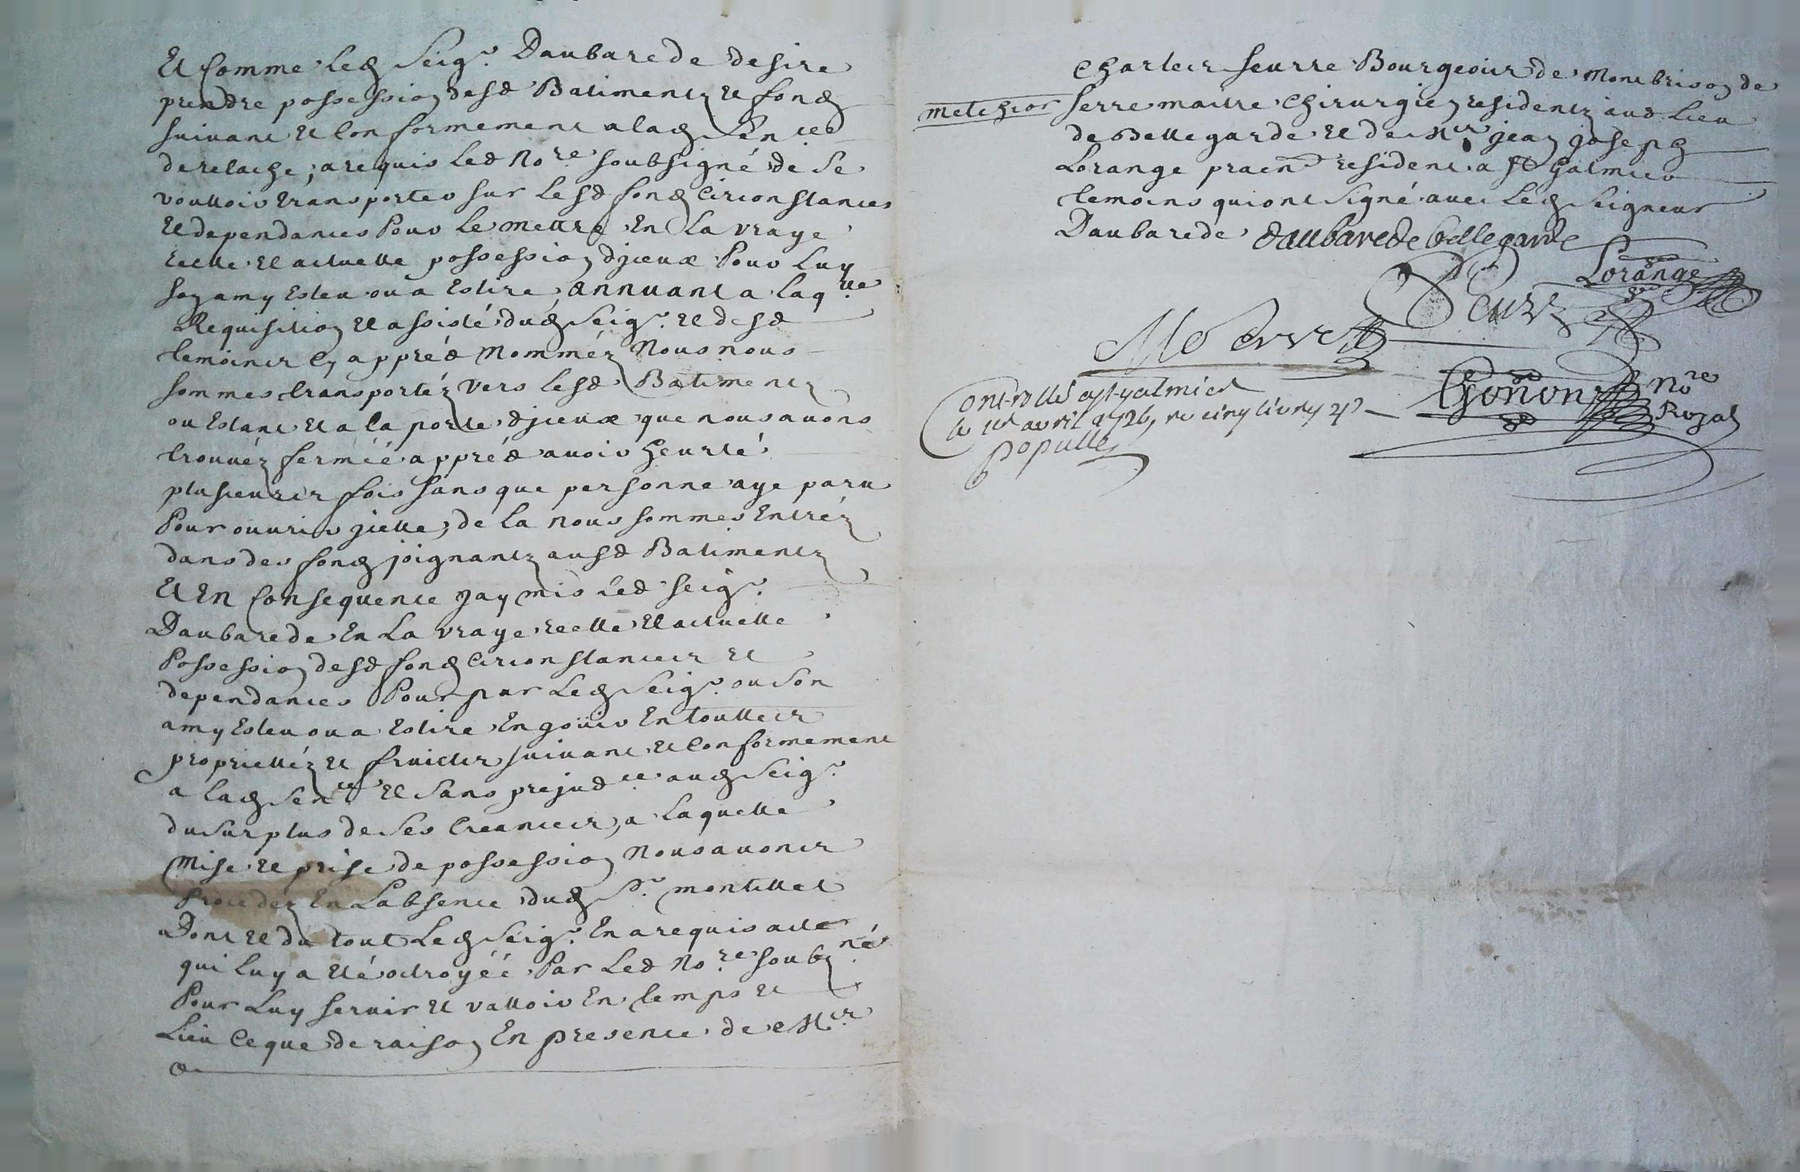 Et Comme led Seigr. Daubarede desire
prendre possession desd Batimentz et fondz
suivant et Conformement a lad Sentce
de relache, a requis led Nore soubsigné de se
voulloir transporter sur lesd fondz Circonstances
et dependances Pour le mettre En La vraye
reelle et actuelle possession d'jceux Pour Luy
son amy Esleu ou a Eslire, Annuant a laqlle
Requisition et assisté dud Seigr. et desd
temoincts Cy appréd Nomméz Nous nous
sommes transportéz vers lesd Batimentz
ou Estant et a la porte d'jceux que nous avons
trouvéz fermée appréd avoir heurté
plusieurs fois sans que personne aye paru
Pour ouvrir jcelle, de la nous sommes Entréz
dans des fondz joignantz ausd Batimentz
Et En Consequence jay mis led Seigr.
Daubarede En La vraye reelle et actuelle
Possession desd fondz Circonstances et
dependances Pour par led Seigr. ou son
amy Esleu ou a Eslire En joüir En touttes
proprietéz et fruicts suivant et Conformement
a lad Sence et sans prejudce aud Seigr.
du surplus de ses Creances, a Laquelle
Mise et prise de possession Nous avons
Procedez En Labsence dud Sr. montellet
Dont et du tout led Seigr. En a requis acte
qui luy a eté octroyéé Par Led Nore soubzné
Pour Luy servir et valloir En temps et
Lieu Ce que de raison En presence de Mr
Charles seurre Bourgeois de Montbrison de
melchior serre maitre Chirurgien residentz aud. Lieu
de Bellegarde et de Mr jean joseph
Lorange pracn resident a St Galmier
temoins qui ont signé avec Led Seigneur
Daubarede daubarede bellegarde
Lorange
Seurre
M Serre
Gonon Nore
Royal
Controllé a st galmier
le avril 1726, re cinq livres
Populle